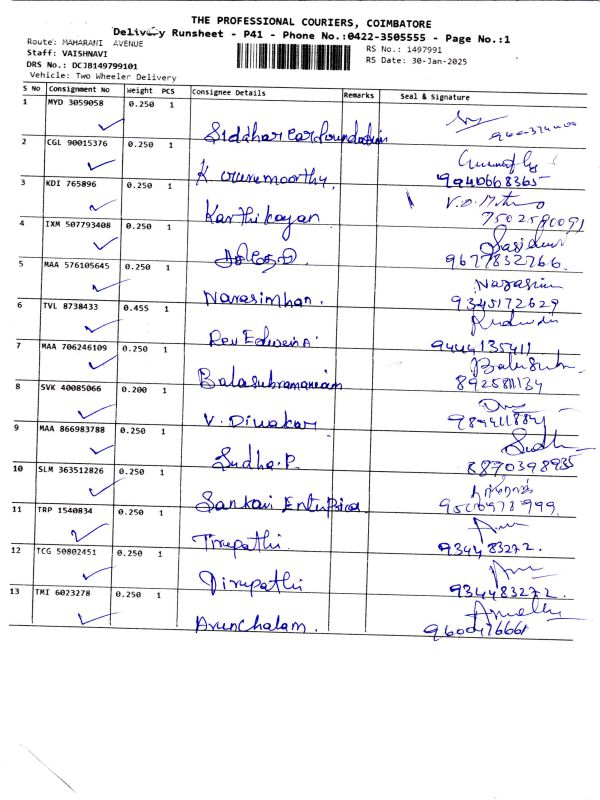 THE PROFESSIONAL COURIERS, COIMBATORE
Delivery Runsheet - P41 - Phone No.:0422-3505555 - Page No.:1
Route: MAHARANI AVENUE
RS No.: 1497991
Staff: VAISHNAVI
RS Date: 30-Jan-2025
DRS No.: DCJB149799101
Vehicle: Two Wheeler Delivery
S No Consignment No Weight PCS Consignee Details Remarks Seal & Signature
1 MYD 3059058 0.250 1
Siddhar Earfoundation
2 CGL 90015376 0.250 1
K. Gurumoorthy.
9940668365
3 KDI 765896 0.250 1
Karthikayan
7502580091
4 IXM 507793408 0.250 1
9677832766.
5 MAA 576105645 0.250 1
Narasimhan. Narasim
9345172629
6 TVL 8738433 0.455 1
Rev Edwein A
9444135411
7 MAA 706246109 0.250 1
Balasubramaniam Balasub
8925811134
8 SVK 40085066 0.200 1
V. Diwakar
9 MAA 866983788 0.250 1
Sudha.P. Sudh
8870398935
10 SLM 363512826 0.250 1
Sankari Enterprices
11 TRP 1540834 0.250 1
Tirupathi.
934483272.
12 TCG 50802451 0.250 1
Tirupathi
934483272.
13 TMI 6023278 0.250 1
Arunchalam.